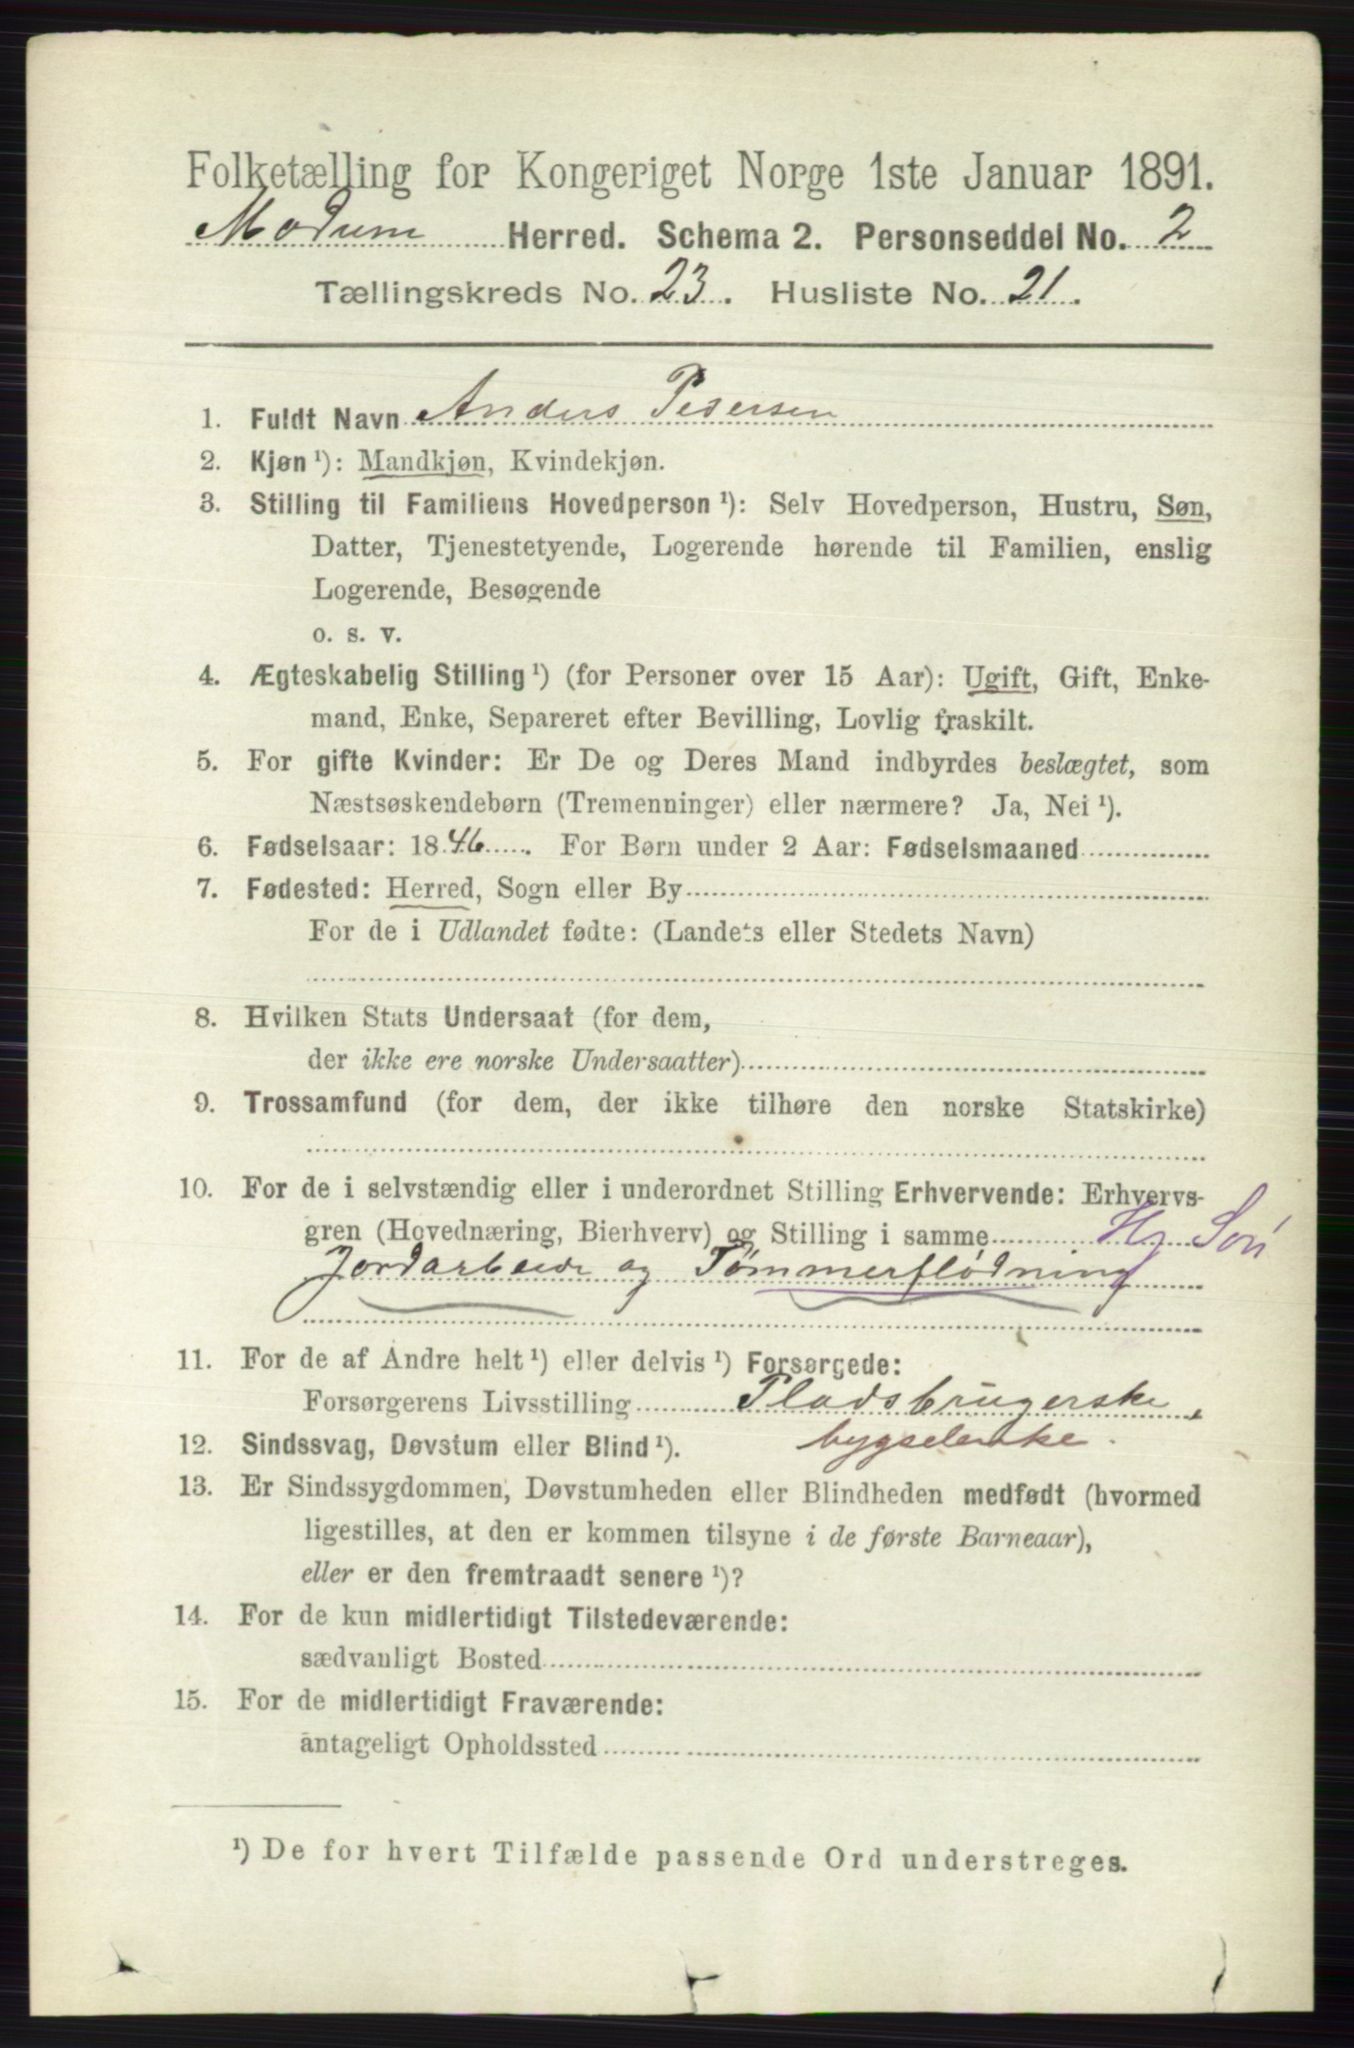 Folketælling for Kongeriget Norge 1ste Januar 1891.
Modum Herred. Schema 2. Personseddel No. 2
Tællingskreds No. 23. Husliste No. 21.
1. Fuldt Navn Anders Pedersen
2. Kjøn ¹): Mandkjøn, Kvindekjøn.
3. Stilling til Familiens Hovedperson ¹): Selv Hovedperson, Hustru, Søn,
Datter, Tjenestetyende, Logerende hørende til Familien, enslig
Logerende, Besøgende
o. s. v.
4. Ægteskabelig Stilling ¹) (for Personer over 15 Aar): Ugift, Gift, Enke-
mand, Enke, Separeret efter Bevilling, Lovlig fraskilt.
5. For gifte Kvinder: Er De og Deres Mand indbyrdes beslægtet, som
Næstsøskendebørn (Tremenninger) eller nærmere? Ja, Nei ¹).
6. Fødselsaar: 1846. For Børn under 2 Aar: Fødselsmaaned
7. Fødested: Herred, Sogn eller By
For de i Udlandet fødte: (Landets eller Stedets Navn)
8. Hvilken Stats Undersaat (for dem,
der ikke ere norske Undersaatter)
9. Trossamfund (for dem, der ikke tilhøre den norske Statskirke)
10. For de i selvstændig eller i underordnet Stilling Erhvervende: Erhvervs-
gren (Hovednæring, Bierhverv) og Stilling i samme Hj Søn
Jordarbeide og Tømmerflødning
11. For de af Andre helt ¹) eller delvis ¹) Forsørgede:
Forsørgerens Livsstilling Pladsbrugerske,
12. Sindssvag, Døvstum eller Blind ¹). bygselenke.
13. Er Sindssygdommen, Døvstumheden eller Blindheden medfødt (hvormed
ligestilles, at den er kommen tilsyne i de første Barneaar),
eller er den fremtraadt senere ¹)?
14. For de kun midlertidigt Tilstedeværende:
sædvanligt Bosted
15. For de midlertidigt Fraværende:
antageligt Opholdssted
¹) De for hvert Tilfælde passende Ord understreges.